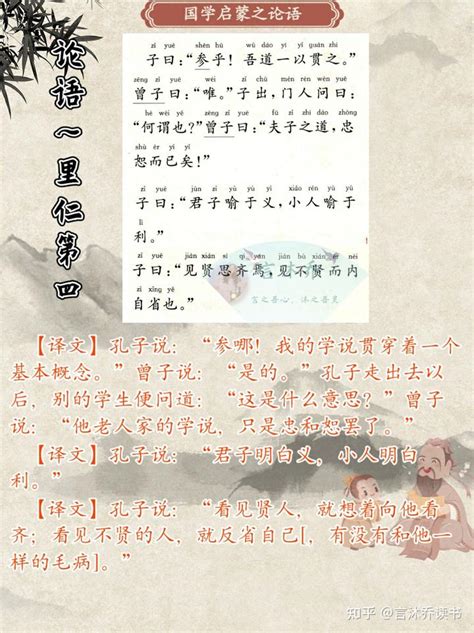 国学启蒙之论语
论语～里仁第四
zǐ yuē shēn hū wú dào yī yǐ guàn zhī
子曰：“参乎！吾道一以贯之。”
zēng zǐ yuē wéi zǐ chū mén rén wèn yuē
曾子曰：“唯。”子出，门人问曰：
hé wèi yě zēng zǐ yuē fū zǐ zhī dào zhōng
“何谓也？”曾子曰：“夫子之道，忠
shù ér yǐ yǐ
恕而已矣！”
zǐ yuē jūn zǐ yù yú yì xiǎo rén yù yú
子曰：“君子喻于义，小人喻于
lì
利。”
zǐ yuē jiàn xián sī qí yān jiàn bù xián ér nèi
子曰：“见贤思齐焉，见不贤而内
zì xǐng yě
自省也。”
言沐乔
言之吾心，沐之吾灵
【译文】孔子说：“参哪！我的学说贯穿着一个
基本概念。”曾子说：“是的。”孔子走出去以
后，别的学生便问道：“这是什么意思？”曾子
说：“他老人家的学说，只是忠和恕罢了。”
【译文】孔子说：“君子明白义，小人明白
利。”
【译文】孔子说：“看见贤人，就想着向他看
齐；看见不贤的人，就反省自己[，有没有和他一
样的毛病]。”
知乎 @言沐乔读书